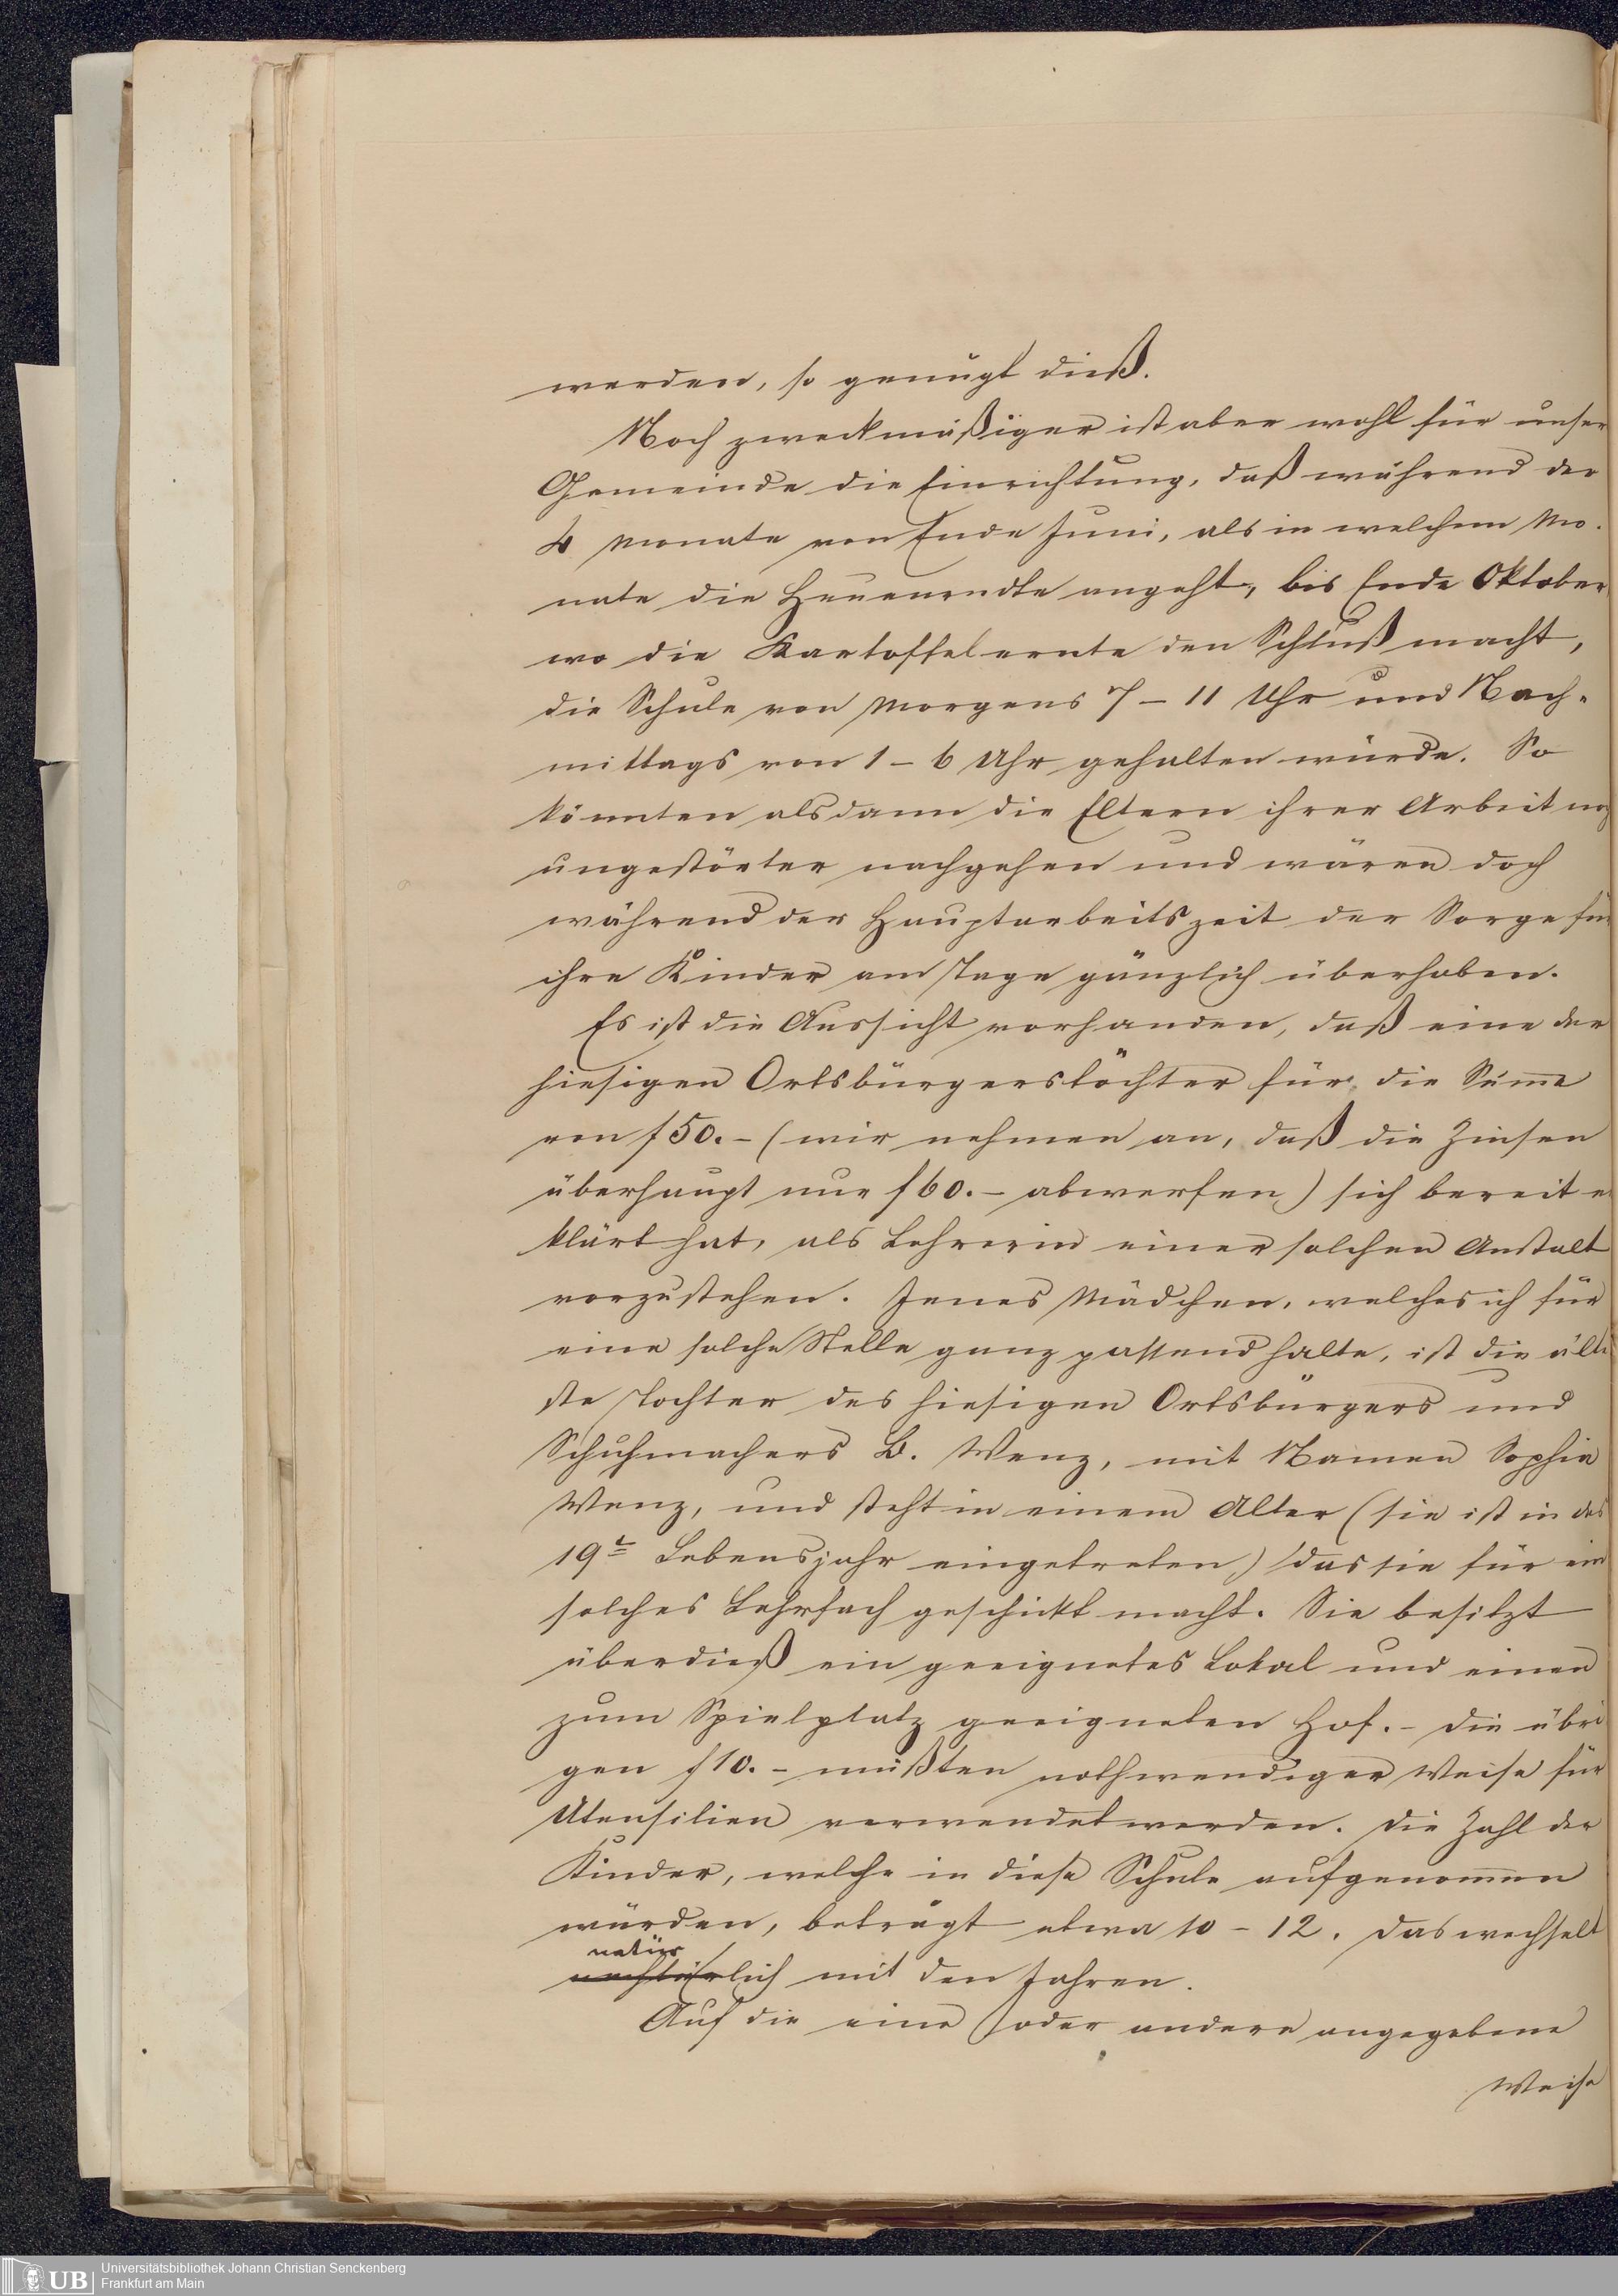 werden, so genügt dieß.
Noch zweckmäßiger ist aber wohl für unser
Gemeinde die Einrichtung, daß während der
4 Monate von Ende Juni, als in welchem Mo-
nate die Heuerndte angeht, bis Ende Oktober
wo die Kartoffelernte den Schluß macht,
die Schule von Morgens 7 – 11 Uhr und Nach-
mittags von 1 – 6 Uhr gehalten würde. So
könnten alsdann die Eltern ihrer Arbeit
ungestörter nachgehen und wären doch
während der Hauptarbeitszeit der Sorge für
ihre Kinder am Tage gänzlich überhoben.
Es ist die Aussicht vorhanden, daß eine der
hiesigen Ortsbürgerstöchter für die Summe
von f 50.– (wir nehmen an, daß die Zinsen
überhaupt nur f 60.– abwerfen) sich bereit er
klärt hat, als Lehrerin einer solchen Anstalt
vorzustehen. Jenes Mädchen, welches ich für
eine solche Stelle ganz passend halte, ist die älte
ste Tochter des hiesigen Ortsbürgers und
Schuhmachers B. Wenz, mit Namen Sophia
Wenz, und steht in einem Alter (sie ist in das
19t Lebensjahr eingetreten) das sie für ein
solches Lehrfach geschickt macht. Sie besitzt
überdieß ein geeignetes Lokal und einen
zum Spielplatz geeigneten Hof. – Die übri
gen f 10. – müßten nothwendiger Weise für
Utensilien verwendet werden. Die Zahl der
Kinder, welche in diese Schule aufgenommen
würden, beträgt etwa 10 – 12. Das wechselt
natür
lich mit den Jahren.
Auf die eine oder andere angegebene
Weise
UB Universitätsbibliothek Johann Christian Senckenberg
Frankfurt am Main